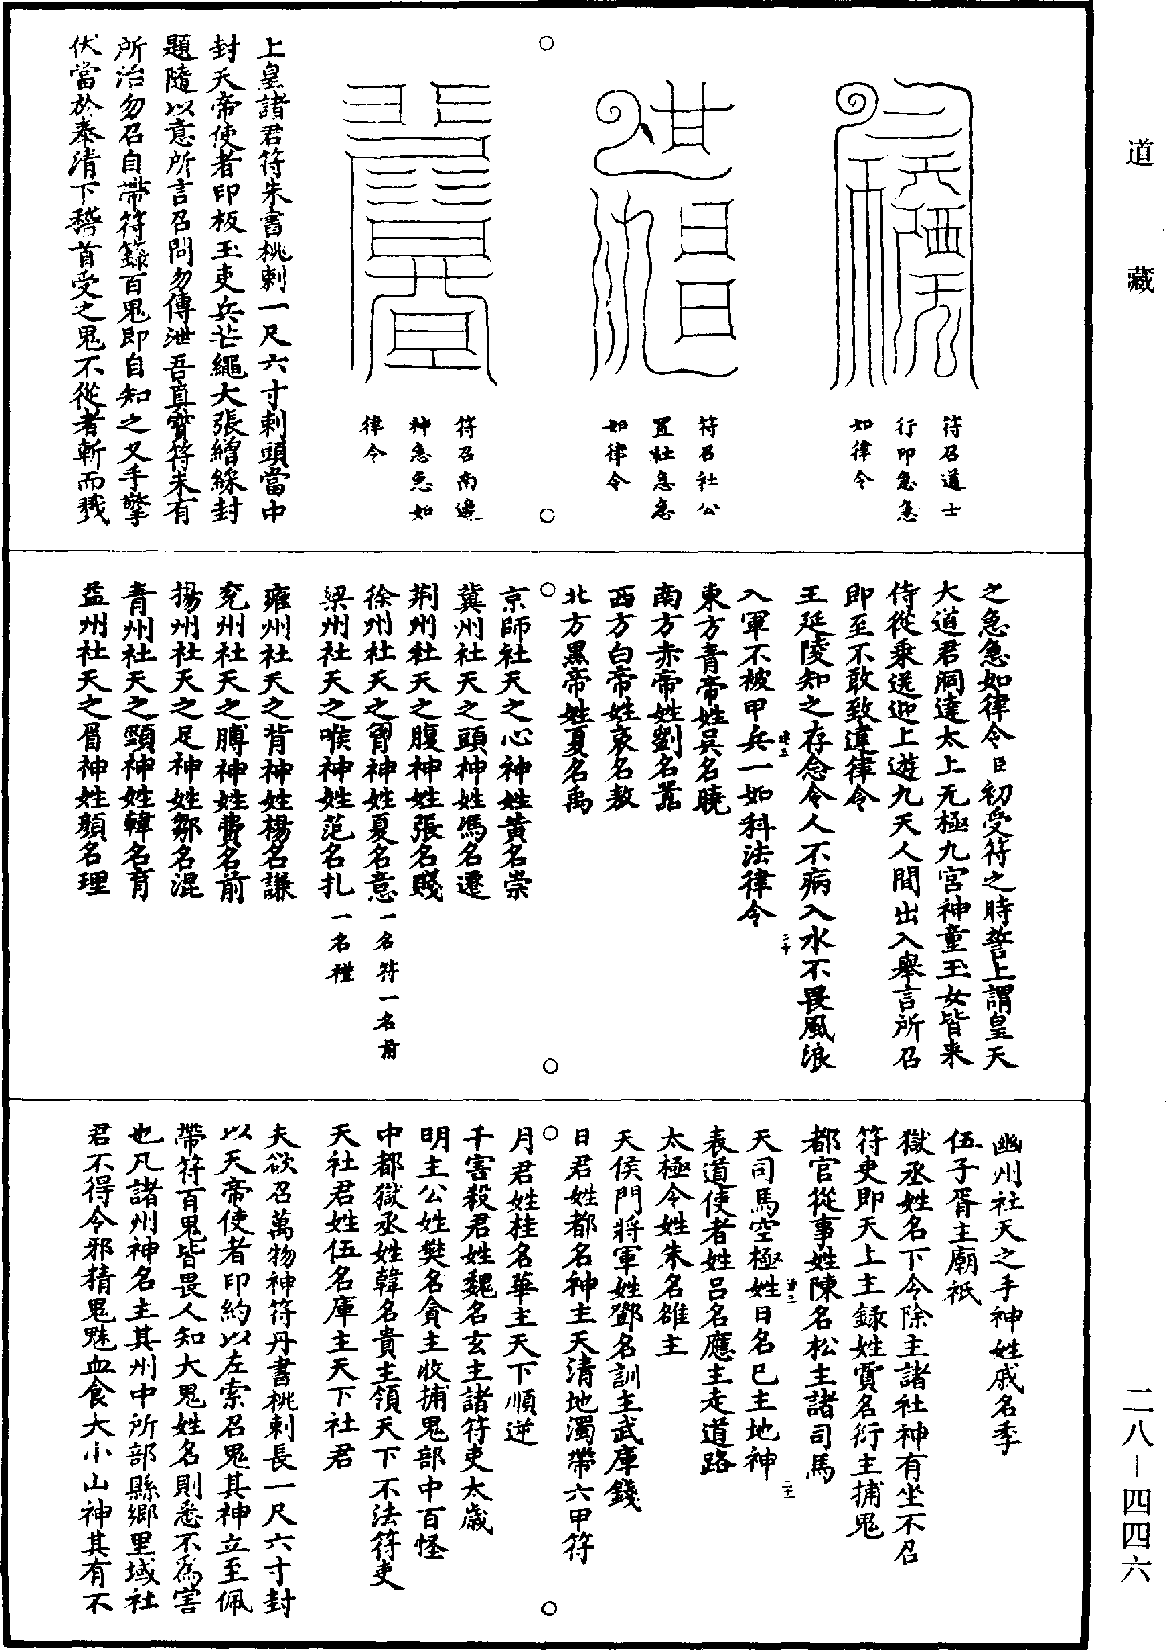 道藏
符召道士
行印急急
如律令
符召社公
置社急急
如律令
符召南邊
神急急如
律令
上皇諸君符朱書桃刺一尺六寸刺頭當中
封天帝使者印板玉吏兵芒繩大張繒綵封
題隨以意所言召問勿傳泄吾真寶符未有
所治勿召自帶符籙百鬼即自知之叉手擎
伏當於奉清下稽首受之鬼不從者斬而戮
之急急如律令臣初受符之時誓上謂皇天
大道君洞達太上无極九宮神童玉女皆来
侍從乘送迎上遊九天人間出入舉言所召
即至不敢致違律令
王延陵知之存念令人不病入水不畏風浪
入軍不被甲兵一如科法律令
東方青帝姓吳名曉
南方赤帝姓劉名嵩
西方白帝姓哀名敖
北方黑帝姓夏名禹
京師社天之心神姓黄名崇
冀州社天之頭神姓馮名遷
荆州社天之腹神姓張名賤
徐州社天之胷神姓夏名意一名符一名前
梁州社天之喉神姓范名扎一名禮
雍州社天之背神姓楊名謙
兖州社天之膊神姓費名前
揚州社天之足神姓鄒名混
青州社天之頸神姓韓名育
益州社天之眉神姓顏名理
幽州社天之手神姓戚名季
伍子胥主廟祇
獄丞姓名下令除主諸社神有坐不召
符吏即天上主録姓賈名衍主捕鬼
都官從事姓陳名松主諸司馬
天司馬空極姓日名巳主地神
表道使者姓吕名應主走道路
太極令姓朱名雄主
天侯門將軍姓鄧名訓主武庫錢
日君姓都名神主天清地濁帶六甲符
月君姓桂名華主天下順逆
千害殺君姓魏名玄主諸符吏太歲
明主公姓樊名貪主收捕鬼部中百怪
中都獄丞姓韓名貴主領天下不法符吏
天社君姓伍名庫主天下社君
夫欲召萬物神符丹書桃刺長一尺六寸封
以天帝使者印約以左索召鬼其神立至佩
帶符百鬼皆畏人知大鬼姓名則悉不爲害
也凡諸州神名主其州中所部縣鄉里域社
君不得令邪精鬼魅血食大小山神其有不
二八－四四六